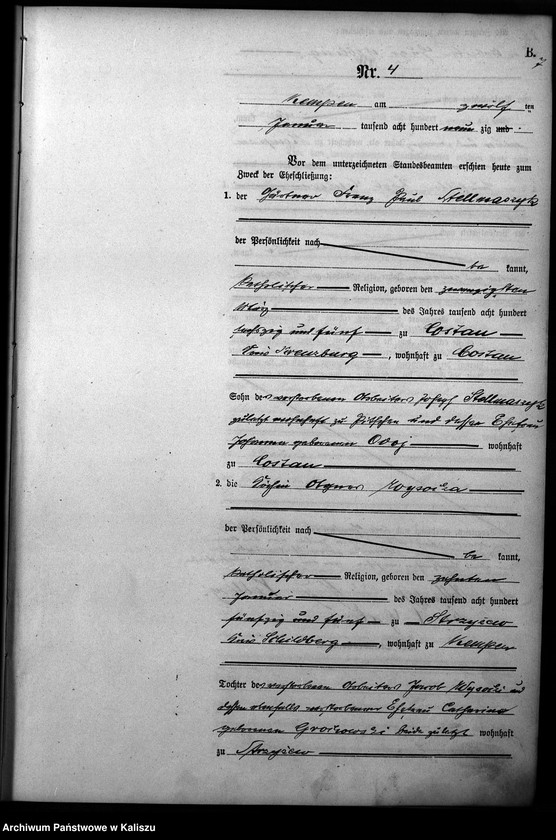 B.
Nr. 4
Kempen am zwölf ten
Januar tausend acht hundert neun zig und
Vor dem unterzeichneten Standesbeamten erschien heute zum
Zweck der Eheschließung:
1. der Gärtner Franz Paul Stellmaszyk
der Persönlichkeit nach
be kannt,
katholischer Religion, geboren den zwanzigsten
März des Jahres tausend acht hundert
sechszig und fünf zu Costau
Kreis Kreuzburg, wohnhaft zu Costau
Sohn des verstorbenen Arbeiters Joseph Stellmaszyk
zuletzt wohnhaft zu Pitschen und dessen Ehefrau
Johanna geborenen wohnhaft
zu Costau
2. die Köchin Agnes Wysocka
der Persönlichkeit nach
be kannt,
katholischer Religion, geboren den zehnten
Januar des Jahres tausend acht hundert
fünfzig und fünf zu Strzyżew
Kreis Schildberg, wohnhaft zu Kempen
Tochter des verstorbenen Arbeiters Jacob Wysocki und
dessen ebenfalls verstorbener Ehefrau Catharina
geborenen beide zuletzt wohnhaft
zu Strzyżew
Archiwum Państwowe w Kaliszu